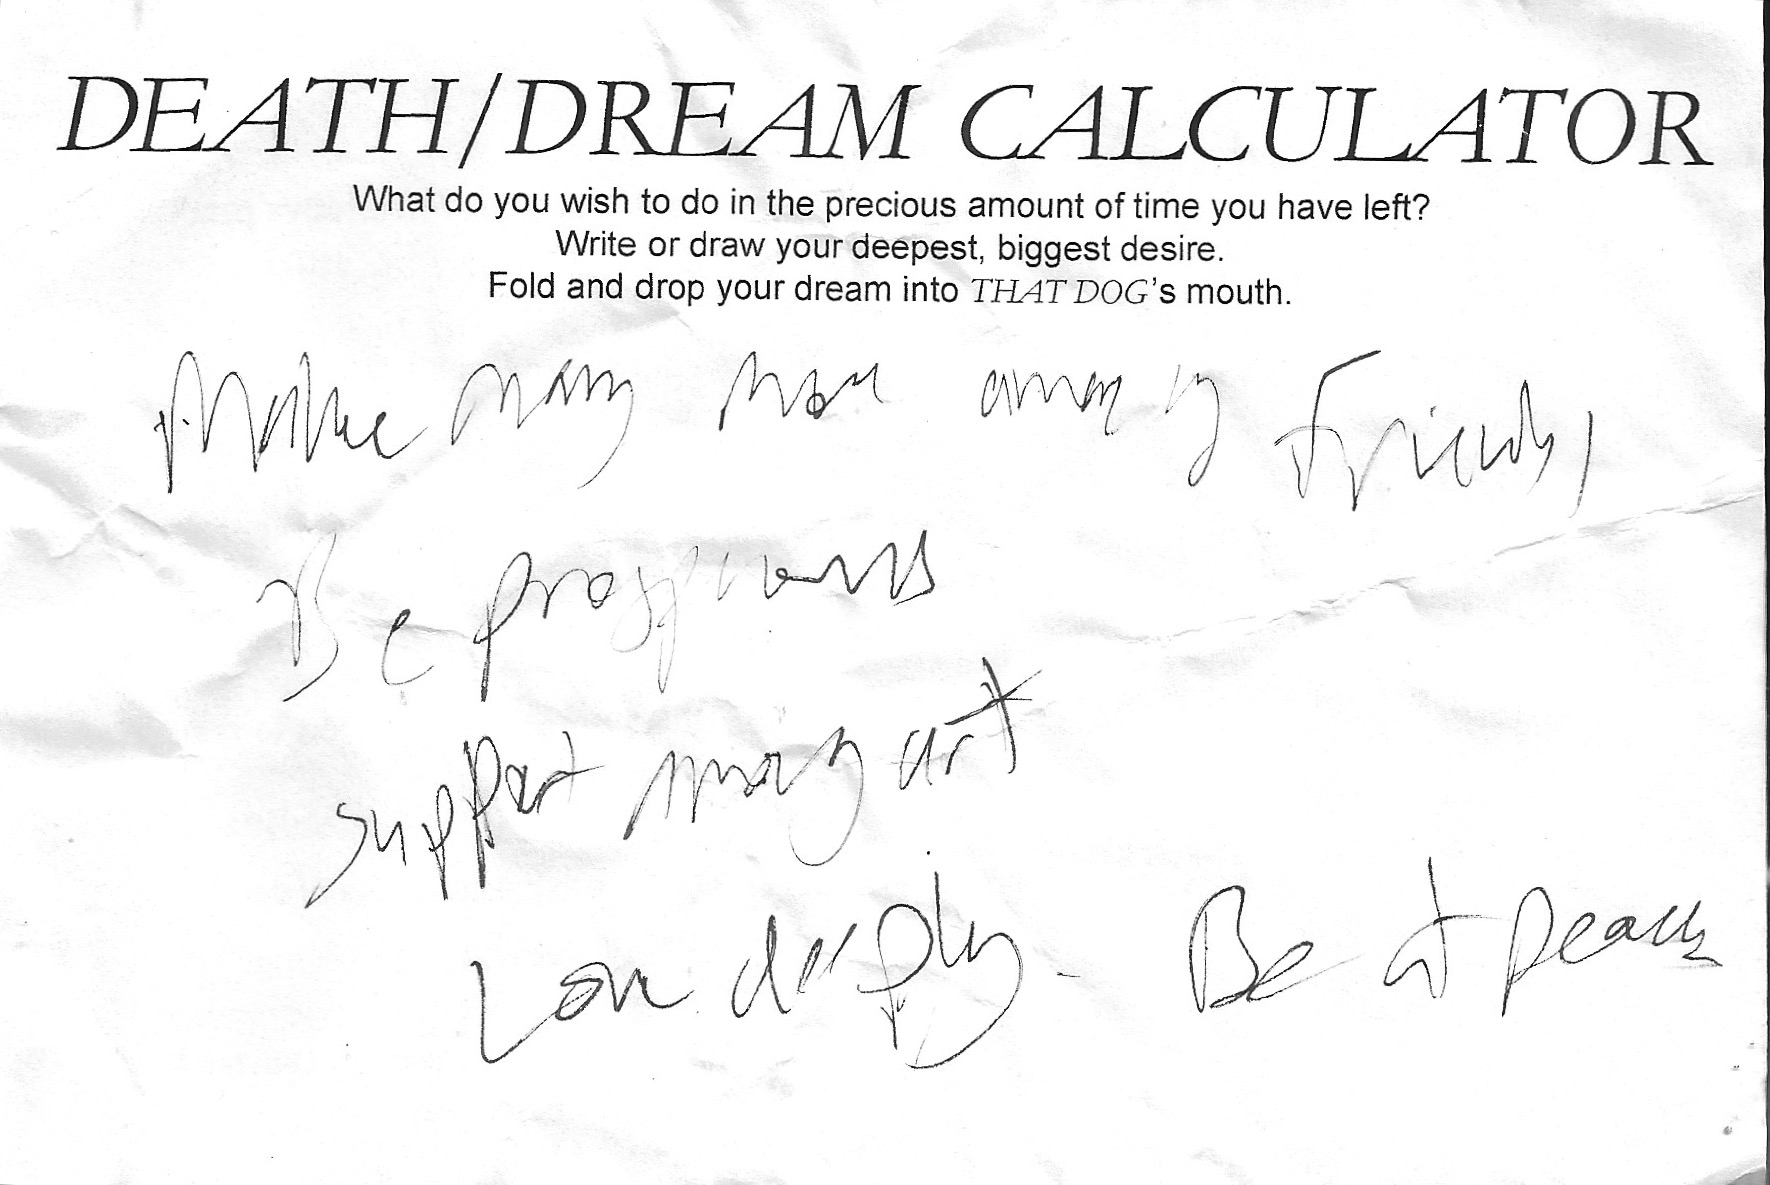 DEATH/DREAM CALCULATOR
What do you wish to do in the precious amount of time you have left?
Write or draw your deepest, biggest desire.
Fold and drop your dream into THAT DOG's mouth.
Make many more amazing Friends,
Be prosperous
support many art
Love deeply. Be at peace